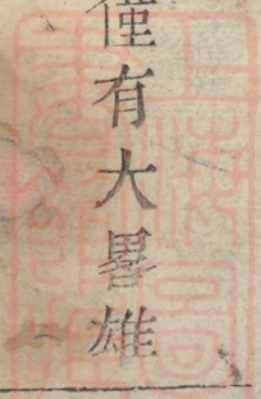 僅有大畧雄